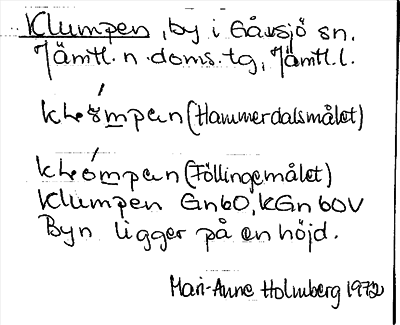 Klumpen, by i Gåxsjö sn,
Jämtl. n. doms. tg, Jämtl. l.
(Hammerdalsmålet)
(Föllingemålet)
Klumpen Gn60, KGn 60V
Byn ligger på en höjd.
Mari-Anne Holmberg 1972